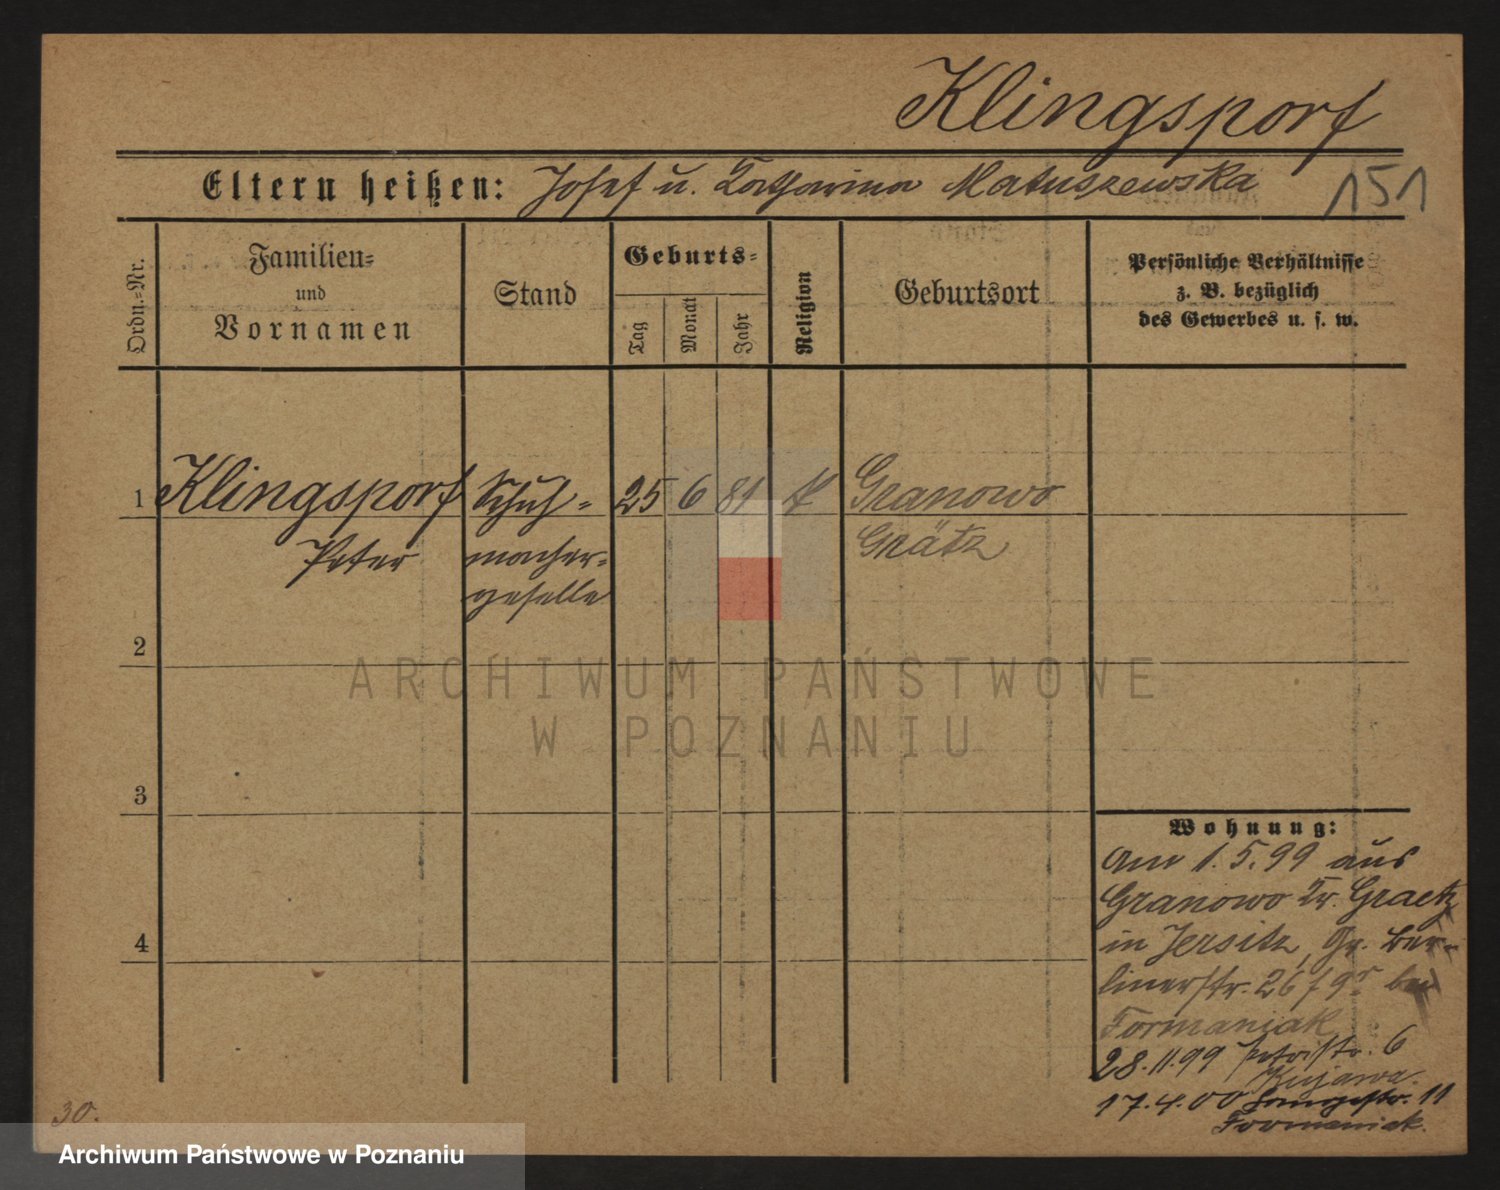 Klingsporf
Eltern heißen: Josef u. Katharina Matuszewska 151
Ordn.-Nr.
Familien-
und
Vornamen
Stand
Geburts-
Tag
Monat
Jahr
Religion
Geburtsort
Persönliche Verhältnisse
z. B. bezüglich
des Gewerbes u. s. w.
1 Klingsporf Schuh- 25 6 81 k Granowo
Peter macher- Grätz
geselle
2
3
4
Wohnung:
am 1.5.99 aus
Granowo Kr. Graetz
in Jersitz, Gr. Ber-
linerstr. 26 bei
Formaniak
28.11.99 Petristr. 6
Kujawa.
17.4.00 Langestr. 11
Formaniak.
30.
ARCHIWUM PAŃSTWOWE
W POZNANIU
Archiwum Państwowe w Poznaniu